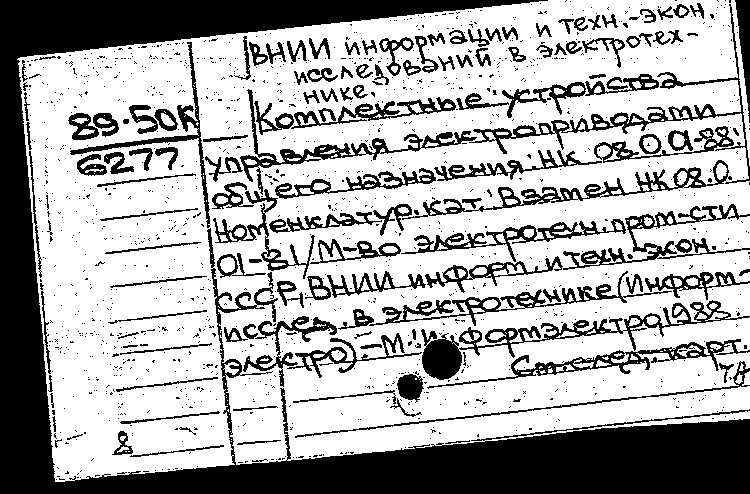 ВНИИ информации и техн.-экон.
исследований в электротех-
нике.
89-50К
6277
Комплектные устройства
управления электроприводами
общего назначения: НК 08.0.01-88:
Номенклатур. кат. Взамен НК 08.0.
01-81/М-во электротехн. пром-сти
СССР, ВНИИ информ. и техн.-экон.
исслед. в электротехнике (Информ-
электро).-М.: Информэлектро, 1988.
См. след. карт.
8